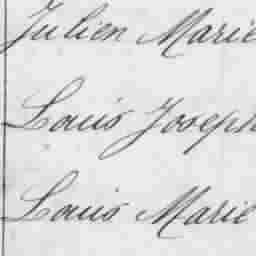 Julien Marie
Louis Joseph
Louis Marie